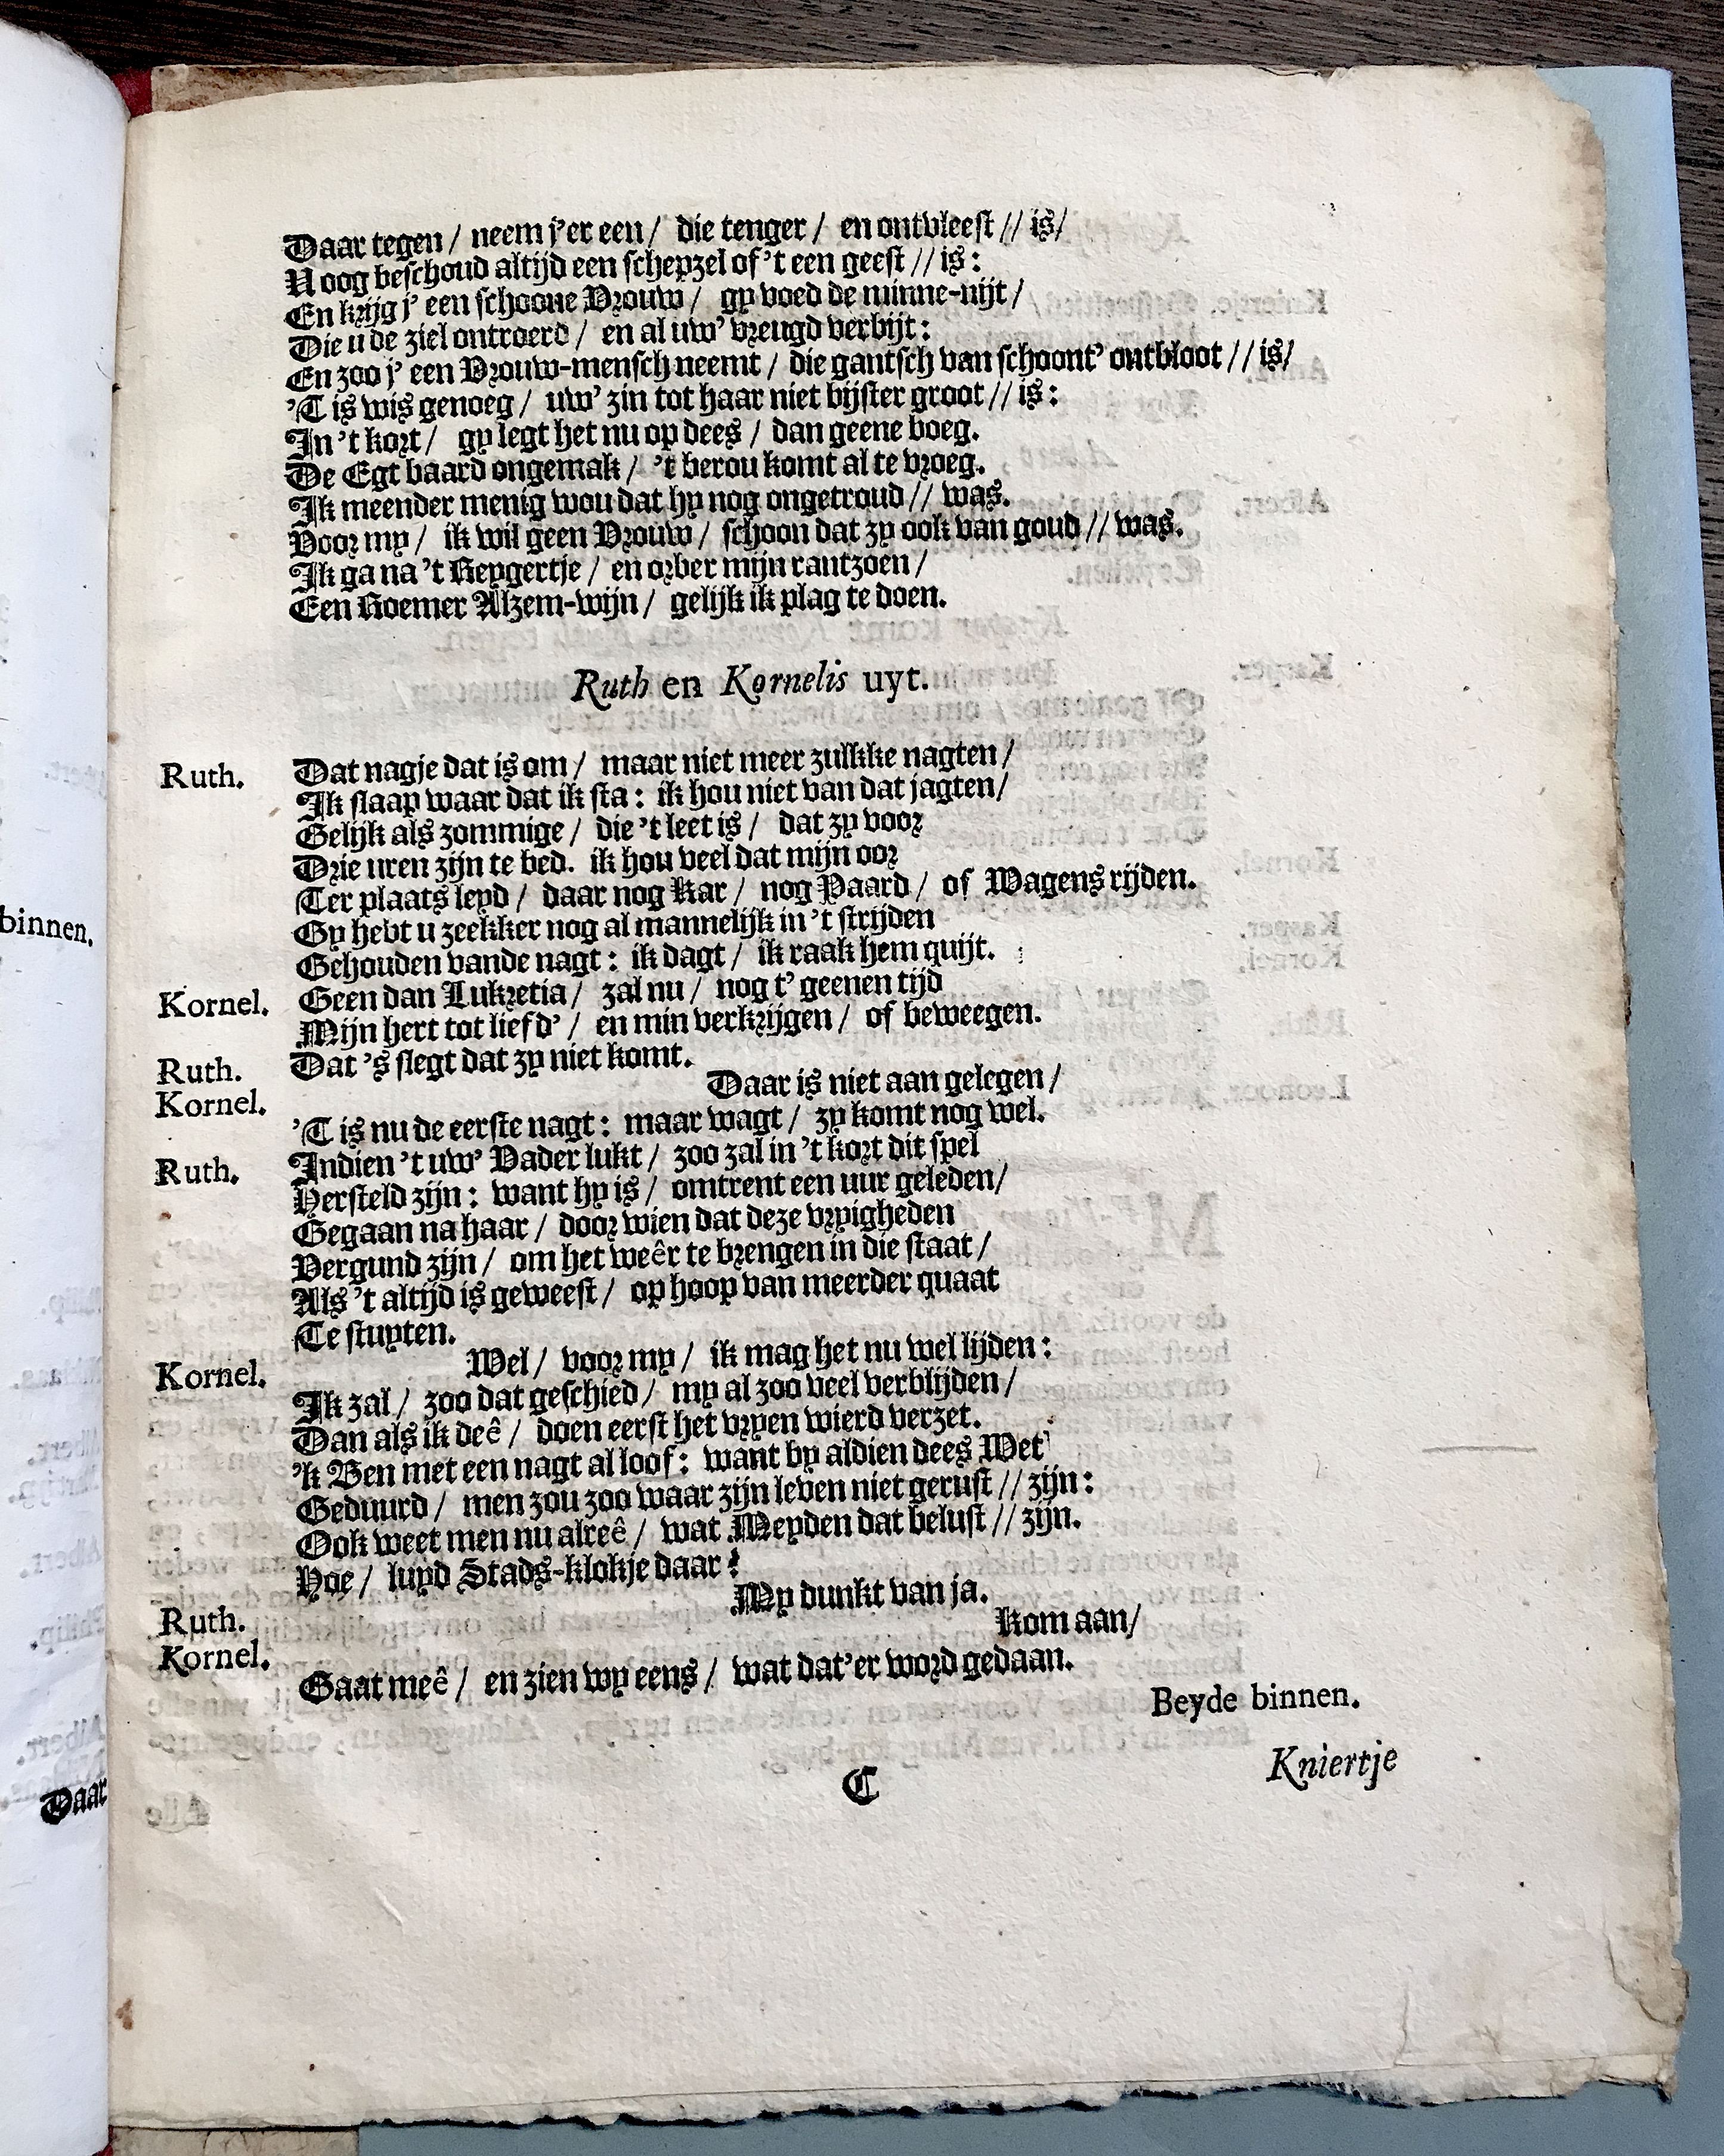 Daar tegen / neem j'er een / die tenger / en ontvleest // is /
U oog beschoud altijd een schepzel of 't een geest // is :
En krijg j' een schoone Vrouw / gy voed de minne-nijt /
Die u de ziel ontroerd / en al uw' vreugd verbijt :
En zoo j' een Vrouw-mensch neemt / die gantsch van schoont' ontbloot // is /
'T is wis genoeg / uw' zin tot haar niet bijster groot // is :
In 't kort / gy legt het nu op dees / dan geene boeg.
De Egt baard ongemak / 't berou komt al te vroeg.
Ik meender menig wou dat hy nog ongetroud // was.
Voor my / ik wil geen Vrouw / schoon dat zy ook van goud // was.
Ik ga na 't Reygertje / en orber mijn rantzoen /
Een Roemer Alzem-wijn / gelijk ik plag te doen.
Ruth en Kornelis uyt.
Ruth. Dat nagje dat is om / maar niet meer zulkke nagten /
Ik slaap waar dat ik sta : ik hou niet van dat jagten /
Gelijk als zommige / die 't leet is / dat zy voor
Drie uren zijn te bed. ik hou veel dat mijn oor
Ter plaats leyd / daar nog Kar / nog Paard / of Wagens rijden.
Gy hebt u zeekker nog al mannelijk in 't strijden
Gehouden vande nagt : ik dagt / ik raak hem quijt.
Kornel. Geen dan Lukretia / zal nu / nog t' geenen tijd
Mijn hert tot liefd' / en min verkrijgen / of beweegen.
Ruth. Dat 's slegt dat zy niet komt.
Kornel. Daar is niet aan gelegen /
'T is nu de eerste nagt : maar wagt / zy komt nog wel.
Ruth. Indien 't uw' Vader lukt / zoo zal in 't kort dit spel
Hersteld zijn : want hy is / omtrent een uur geleden /
Gegaan na haar / door wien dat deze vryigheden
Vergund zijn / om het weêr te brengen in die staat /
Als 't altijd is geweest / op hoop van meerder quaat
Te stuyten.
Kornel. Wel / voor my / ik mag het nu wel lijden :
Ik zal / zoo dat geschied / my al zoo veel verblijden /
Dan als ik deê / doen eerst het vryen wierd verzet.
'k Ben met een nagt al loof : want by aldien dees Wet
Geduurd / men zou zoo waar zijn leven niet gerust // zijn :
Ook weet men nu alreê / wat Meyden dat belust // zijn.
Hoe / luyd Stads-klokje daar ?
Ruth. My dunkt van ja.
Kornel. Kom aan /
Gaat meê / en zien wy eens / wat dat'er word gedaan.
Beyde binnen.
C
Kniertje
binnen.
Daar